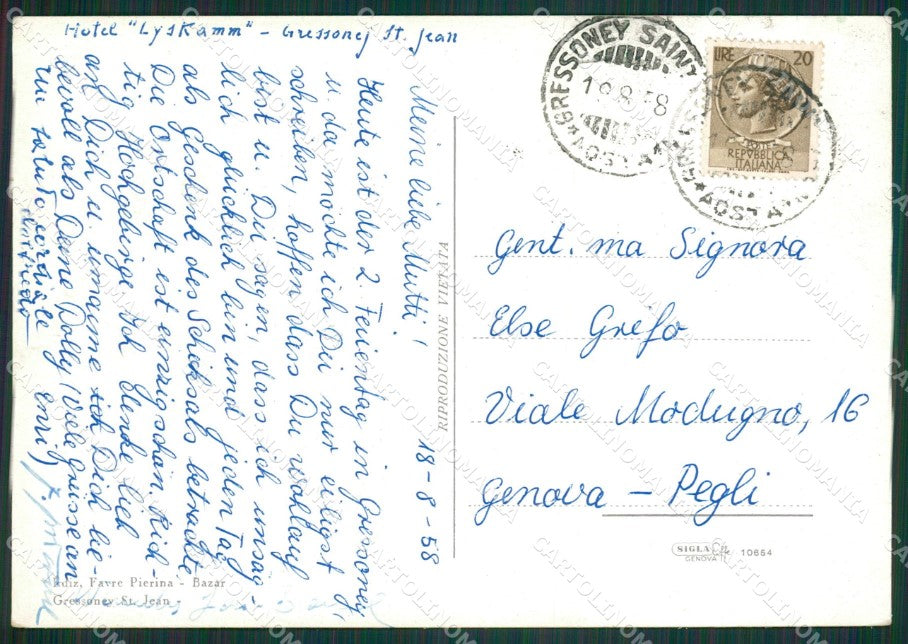 Hotel "Lyskamm" - Gressoney St. Jean
18-8-58
Meine liebe Mutti!
Heute ist der 2 Feientag in Gressoney,
u. da möchte ich Dir nur eiligst
schreiben, hoffen dass Du wohlauf
bist u. Dir sagen, dass ich unsag-
lich glücklich bin und jeden Tag
als Geschenk des Schicksals betrachte.
Die Ortschaft ist einzigschön. Rich-
tig Hochgebirge. Ich denke lieb
an Dich u. umarme Dich lie-
bevoll als Deine Dolly (Viele Grüsse an
Emi)
Un saluto cordiale
RIPRODUZIONE VIETATA
Ediz. Favre Pierina - Bazar
Gressoney St. Jean
GRESSONEY SAINT
18.8.58
*AOSTA*
LIRE 20
POSTE
REPVBBLICA
ITALIANA
AOSTA
Gent.ma Signora
Else Grefo
Viale Modugno, 16
Genova - Pegli
SIGLA
GENOVA
10654
CARTOLINOMANIA